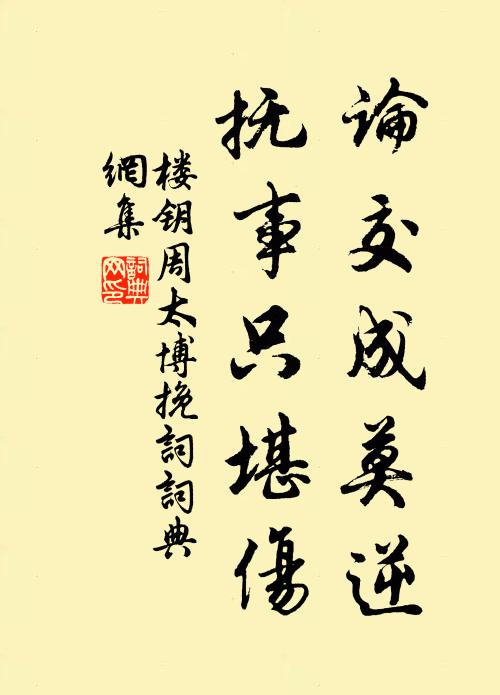 論交成莫逆
抚事只堪傷
楼钥周太博挽詞詞典
網集
詞典
网印